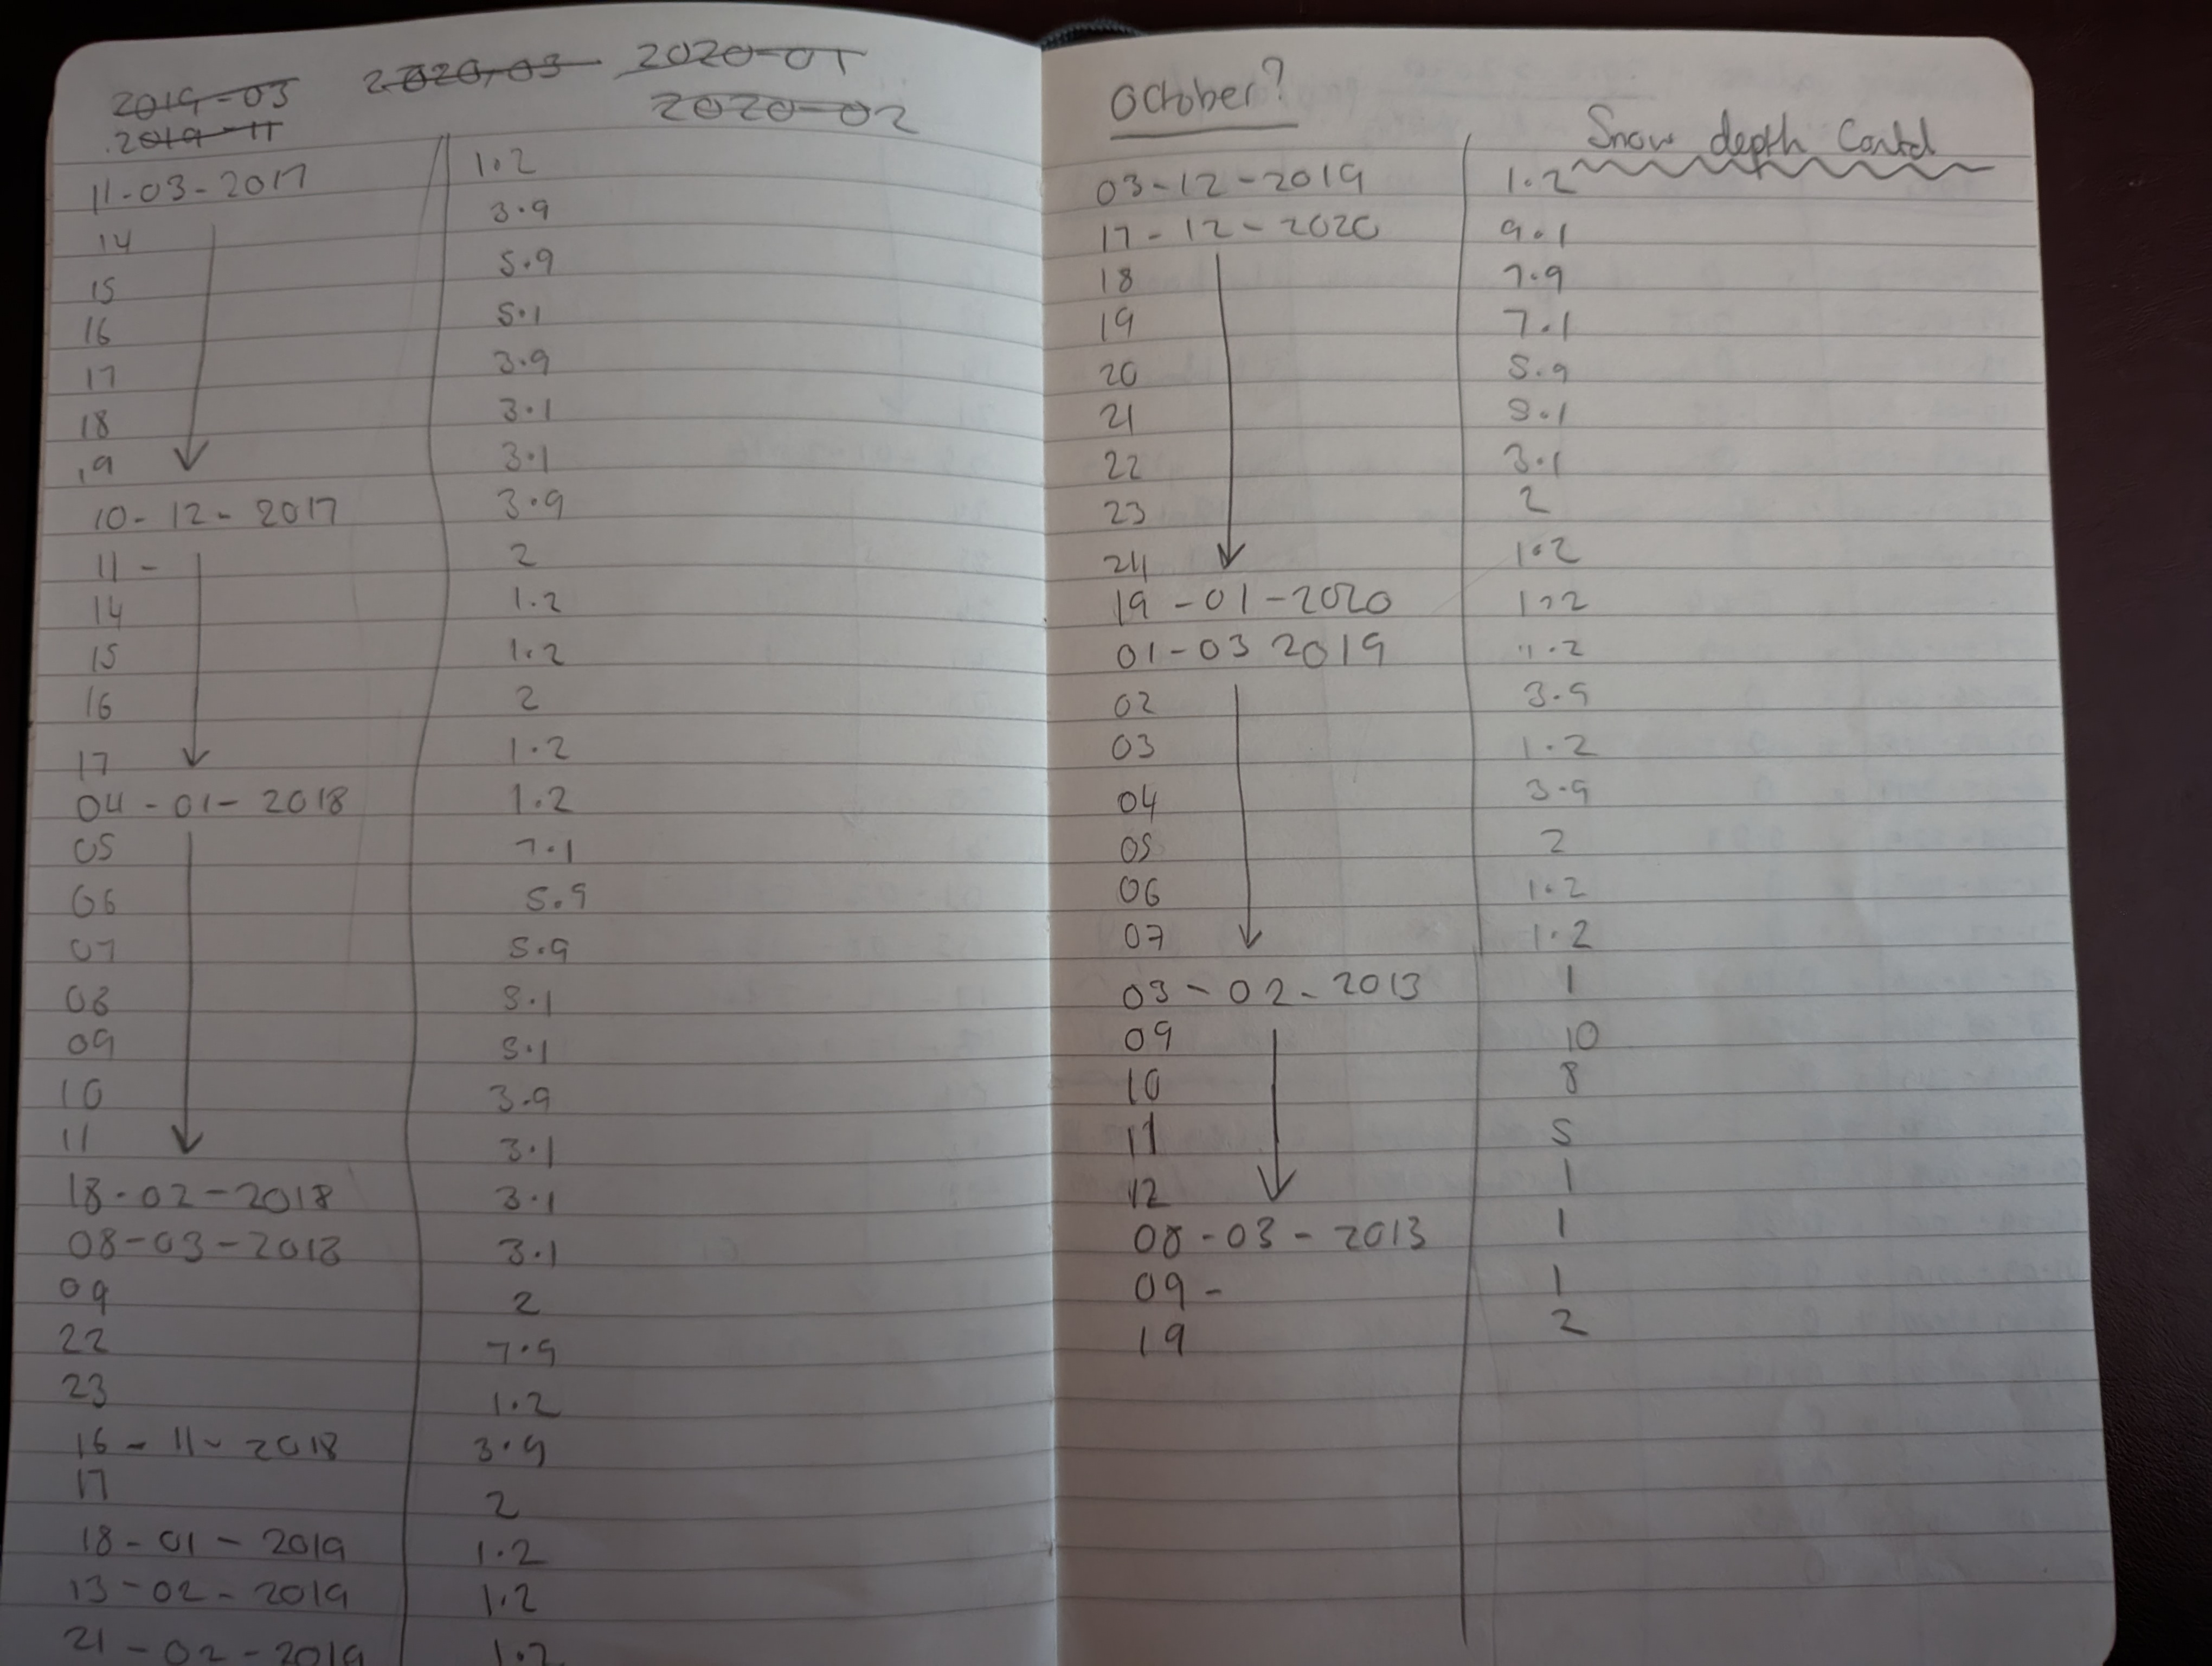 2019-03 2020,03 2020-01
2019-11 2020-02
11-03-2017 1.2
14 3.9
15 5.9
16 5.1
17 3.9
18 3.1
19 3.1
10-12-2017 3.9
11- 2
14 1.2
15 1.2
16 2
17 1.2
04-01-2018 1.2
05 7.1
06 5.9
07 5.9
08 5.1
09 5.1
10 3.9
11 3.1
18-02-2018 3.1
08-03-2018 3.1
09 2
22 7.9
23 1.2
16-11-2018 3.9
17 2
18-01-2019 1.2
13-02-2019 1.2
21-02-2019 1.2
October?
Snow depth Contd
03-12-2019 1.2
17-12-2020 9.1
18 7.9
19 7.1
20 5.9
21 5.1
22 3.1
23 2
24 1.2
19-01-2020 1.2
01-03 2019 11.2
02 3.9
03 1.2
04 3.9
05 2
06 1.2
07 1.2
03-02-2013 1
09 10
10 8
11 5
12 1
08-03-2013 1
09- 1
19 2